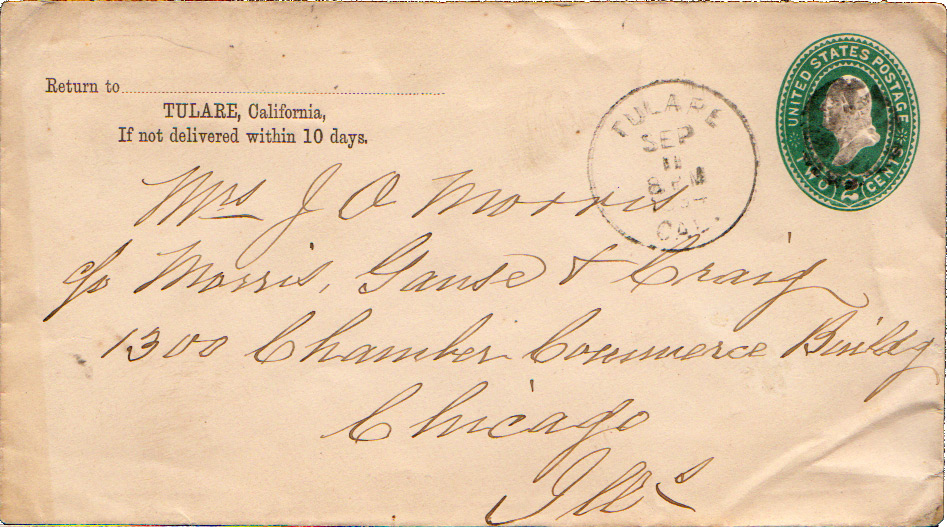 Return to
TULARE, California,
If not delivered within 10 days.
TULARE
SEP
11
8 PM
CAL.
UNITED STATES POSTAGE
TWO 2 CENTS
Mrs J O Morris
c/o Morris, Ganse & Craig
1300 Chamber Commerce Buildg
Chicago
Ills